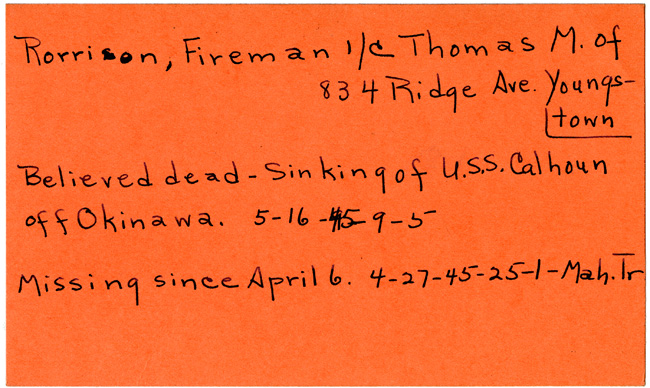 Rorrison, Fireman 1/c Thomas M. of
834 Ridge Ave. Youngs-
town
Believed dead - Sinking of U.S.S. Calhoun
off Okinawa. 5-16-45-9-5
Missing since April 6. 4-27-45-25-1-Mah. Tr